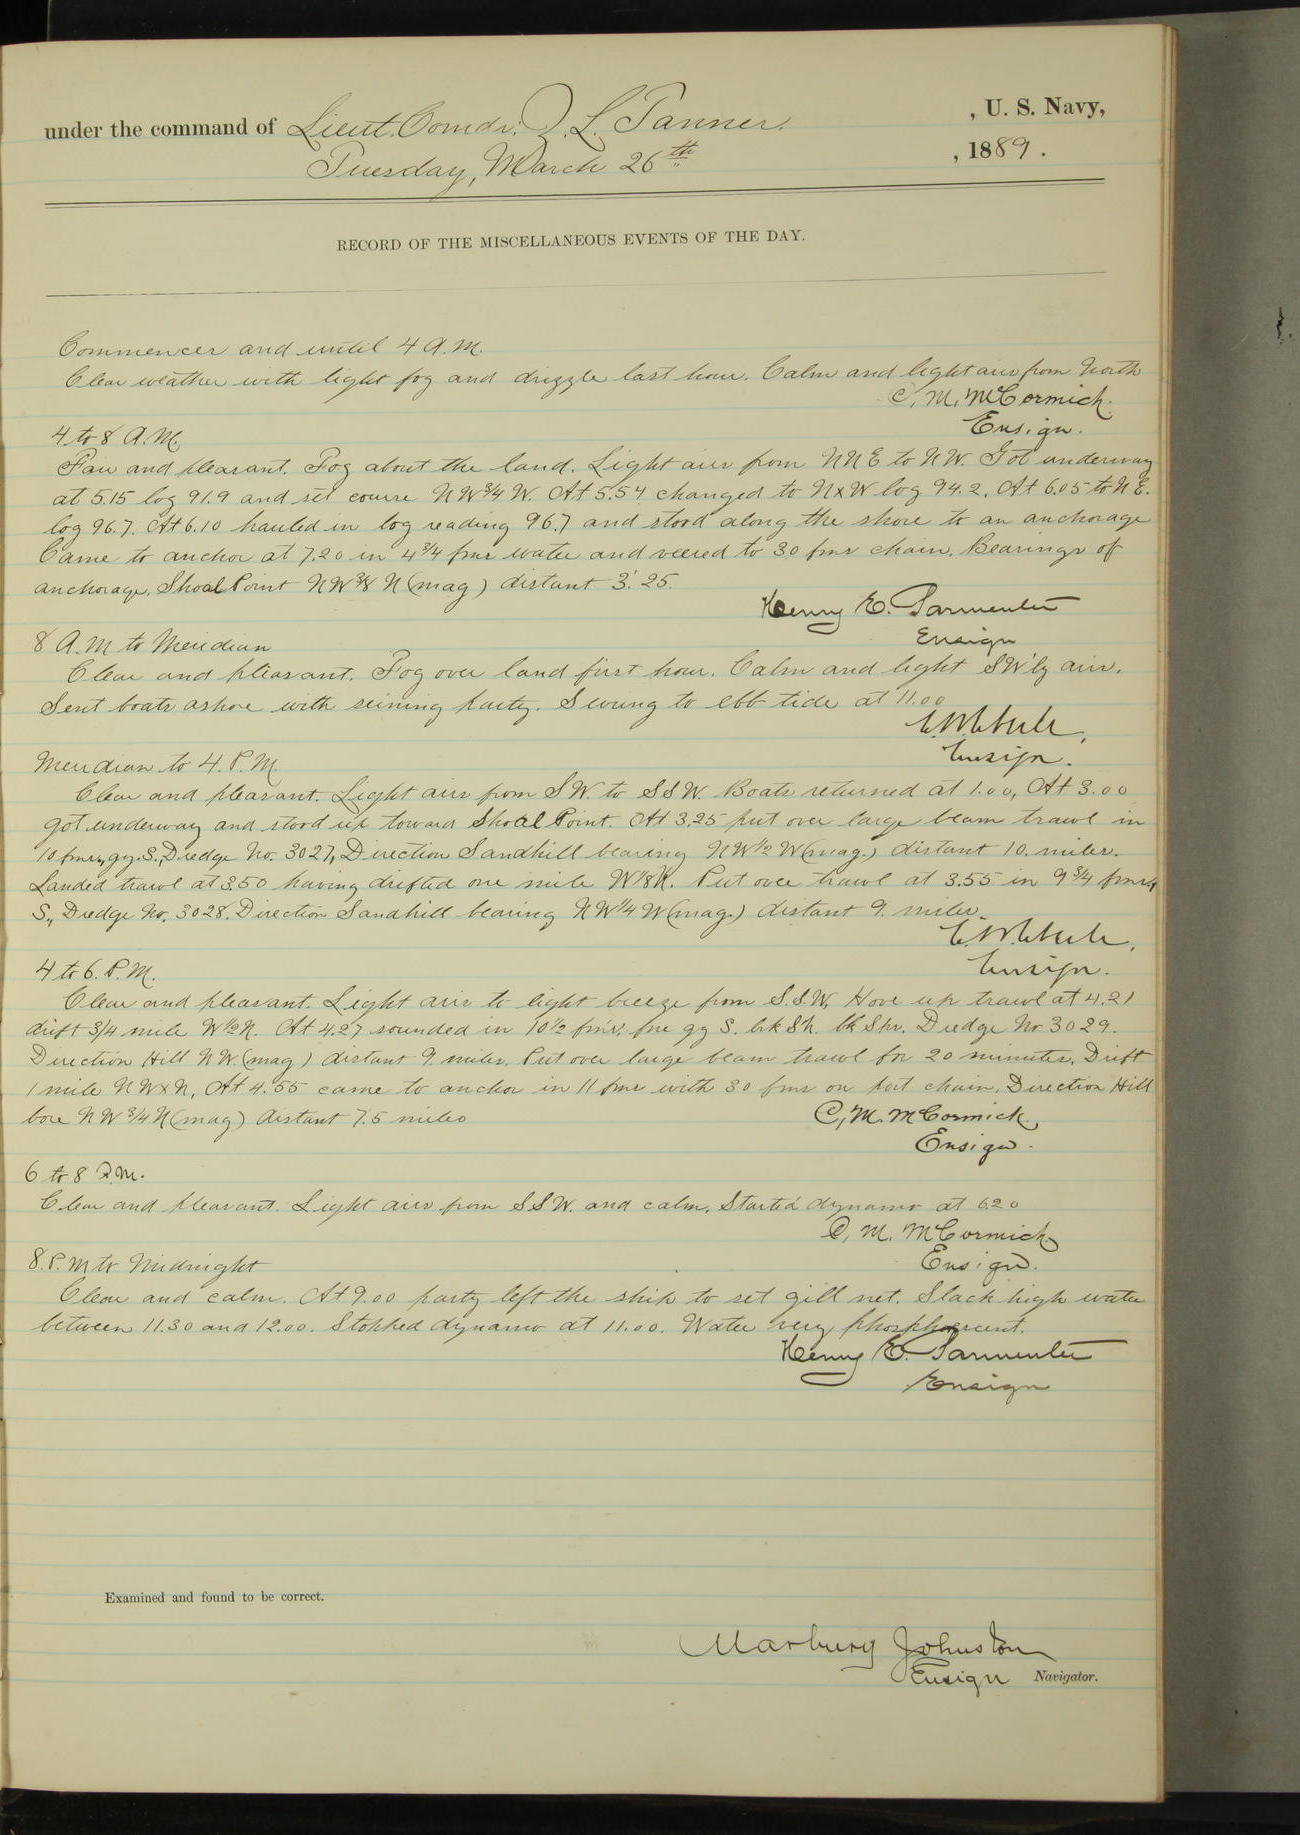 under the command of Lieut. Comdr. Z. L. Tanner. , U. S. Navy,
Tuesday, March 26th , 1889.
RECORD OF THE MISCELLANEOUS EVENTS OF THE DAY.
Commences and until 4 A.M.
Clear weather with light fog and drizzle last hour. Calm and light airs from North
C. M. McCormick.
Ensign.
4 to 8 A.M.
Fair and pleasant. Fog about the land. Light airs from NNE to NW. Got underway
at 5.15 log 91.9 and set course NW3/4 W. At 5.54 changed to NxW log 94.2. At 6.05 to N E.
log 96.7. At 6.10 hauled in log reading 96.7 and stood along the shore to an anchorage
Came to anchor at 7.20 in 4 3/4 fms water and veered to 30 fms chain. Bearings of
anchorage, Shoal Point NW 3/8 N (mag) distant 3'.25.
Henry E. Parmenter
Ensign
8 A.M to Meridian
Clear and pleasant. Fog over land first hour. Calm and light SW'ly airs.
Sent boats ashore with seining party. Swung to ebb tide at 11.00
E.W. Eberle,
Ensign.
Meridian to 4. P.M.
Clear and pleasant. Light airs from SW. to SSW. Boats returned at 1.00, At 3.00
got underway and stood up toward Shoal Point. At 3.25 put over large beam trawl in
10 fms, gy. S., Dredge No. 3027, Direction Sandhill bearing NW1/2 W (mag.) distant 10. miles.
Landed trawl at 3.50 having drifted one mile W1/8N. Put over trawl at 3.55 in 9 3/4 fms,
S., Dredge No. 3028. Direction Sandhill bearing NW1/4 W (mag.) distant 9. miles.
E.W. Eberle,
Ensign.
4 to 6. P.M.
Clear and pleasant. Light airs to light breeze from S.S.W. Hove up trawl at 4.21
drift 3/4 mile W1/2N. At 4.27 sounded in 10 1/2 fms, fne gy S. brk Sh. bk Sps. Dredge No 3029.
Direction Hill NW. (mag) distant 9. miles. Put over large beam trawl for 20 minutes. Drift
1 mile NWxN, At 4.55 came to anchor in 11 fms with 30 fms on port chain. Direction Hill
bore NW 3/4 N (mag) distant 7.5 miles
C. M. McCormick,
Ensign.
6 to 8 P.M.
Clear and pleasant. Light airs from SSW. and calm. Started dynamo at 6.20
C. M. McCormick
Ensign.
8. P.M to Midnight
Clear and calm. At 9.00 party left the ship to set gill net. Slack high water
between 11.30 and 12.00. Stopped dynamo at 11.00. Water very phosphorescent.
Henry E. Parmenter
Ensign
Examined and found to be correct.
Marbury Johnston
Ensign Navigator.